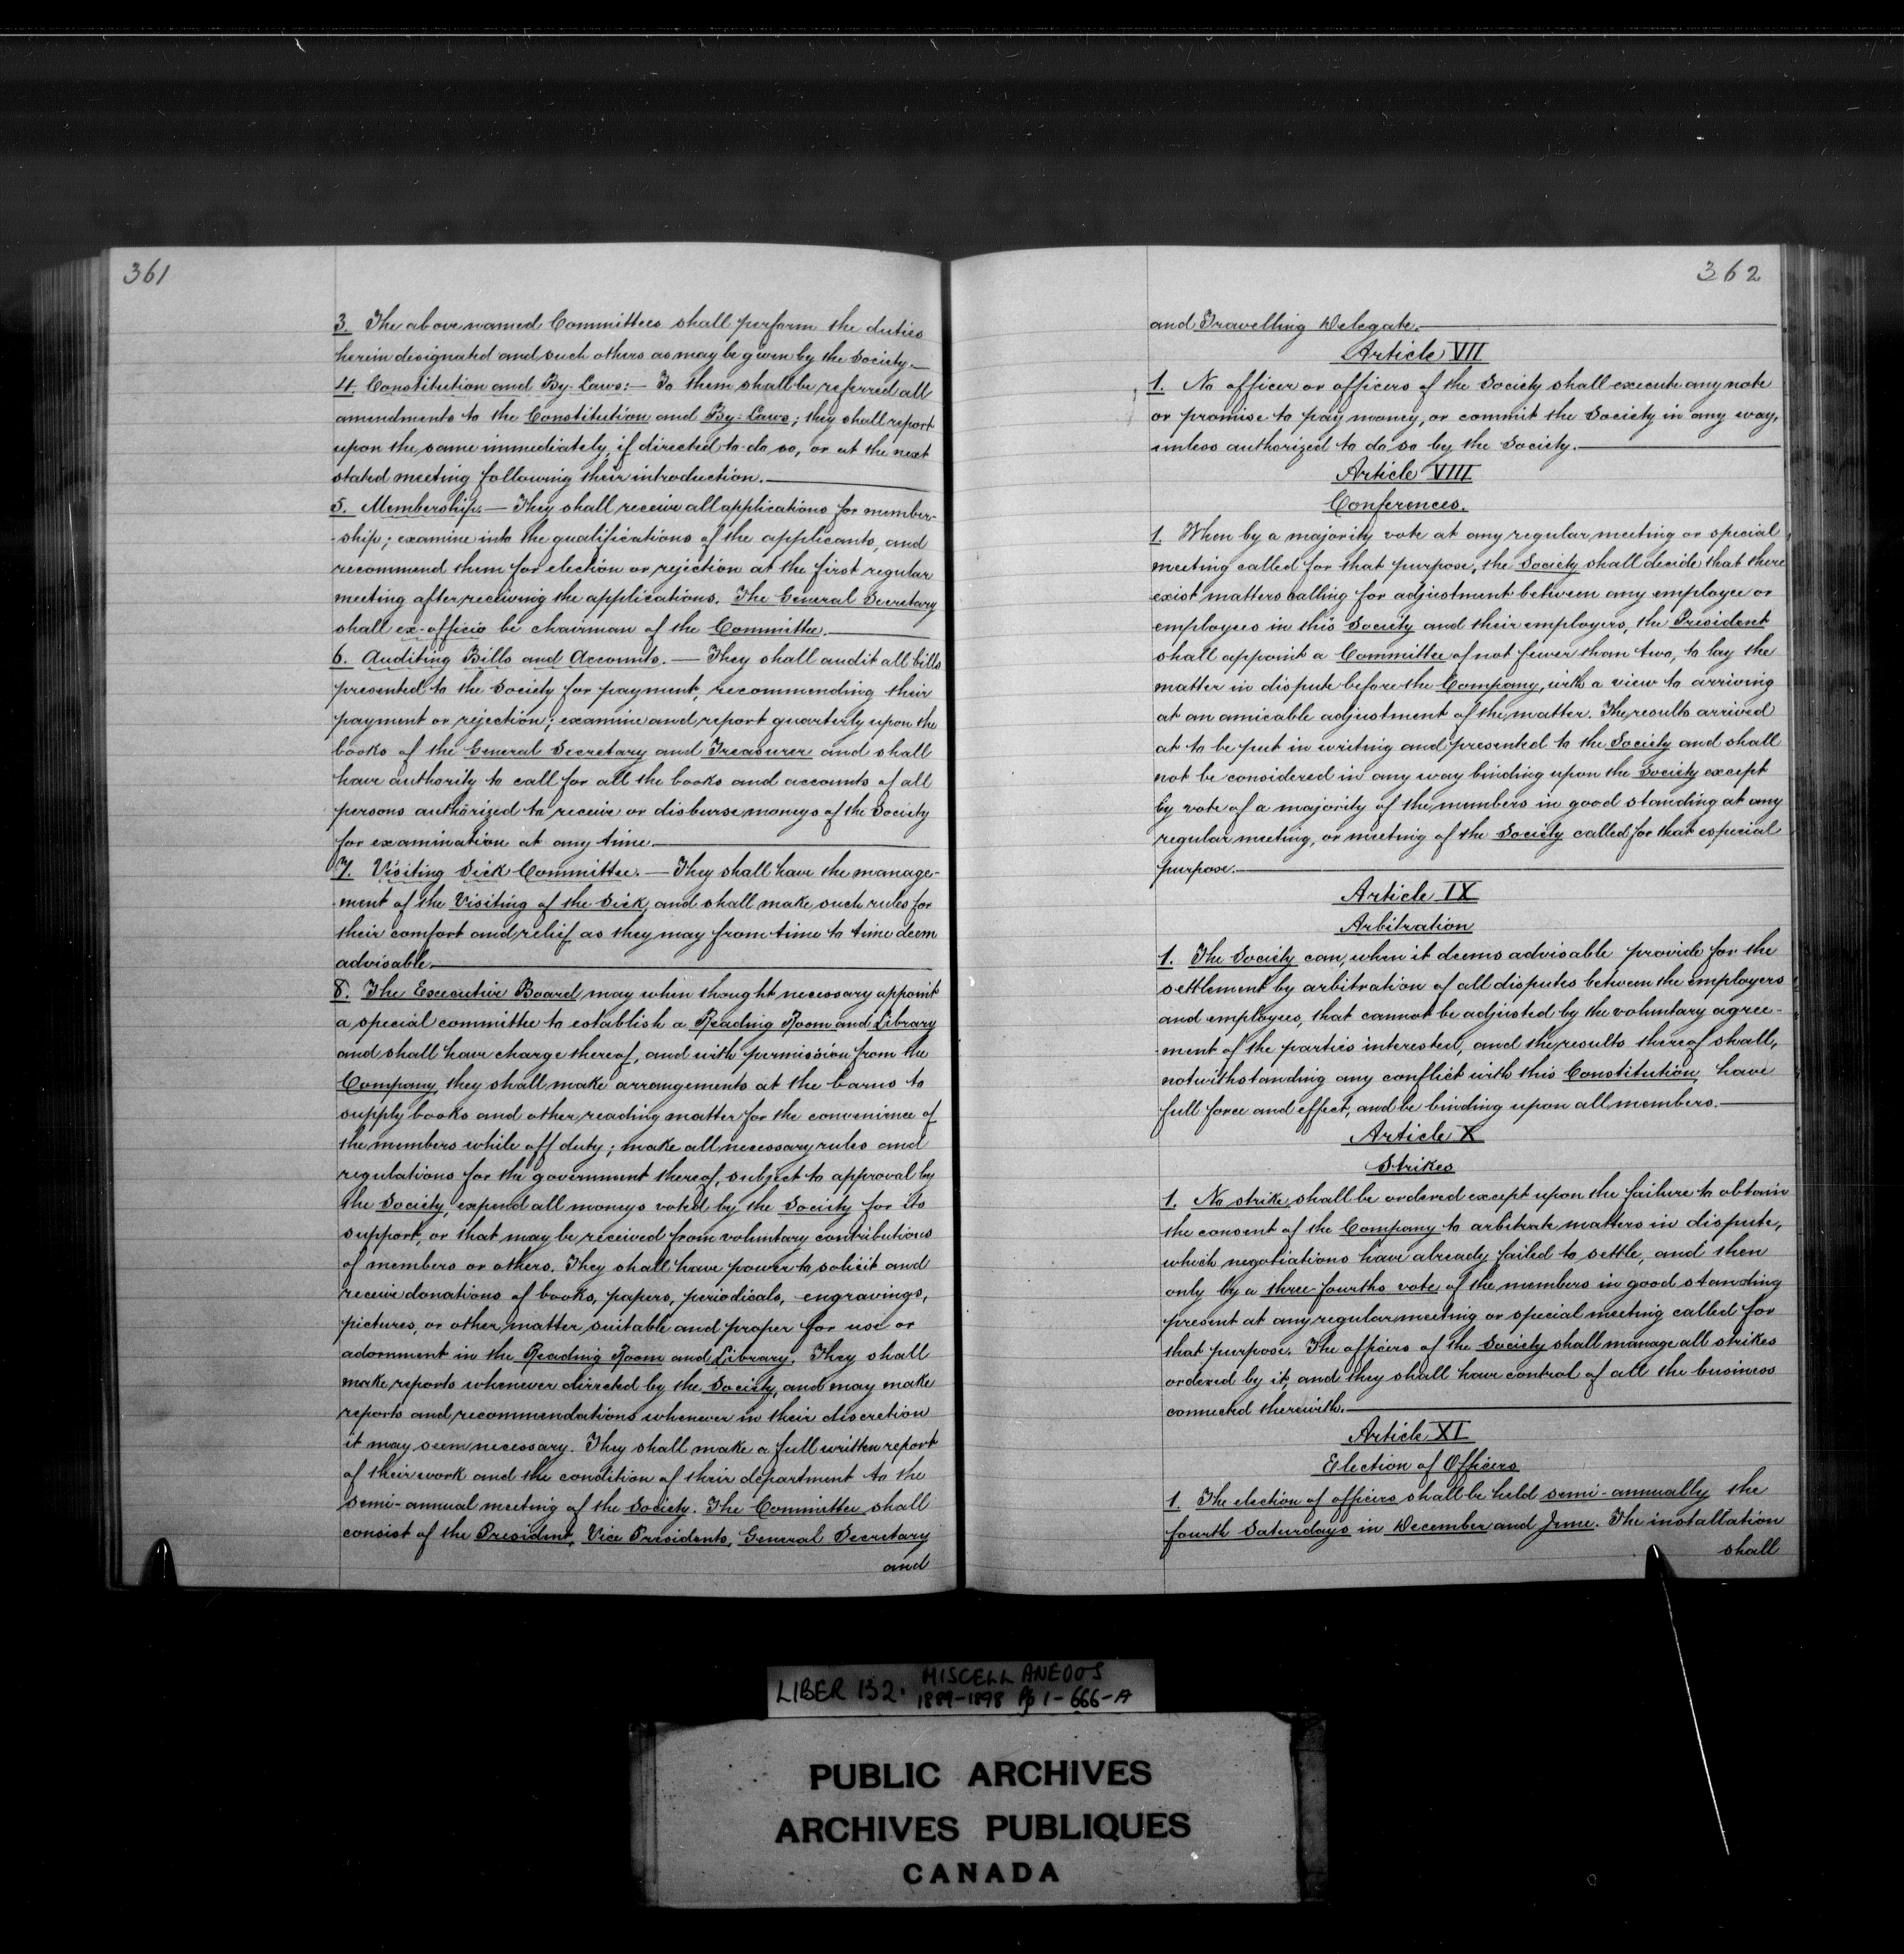 361
3. The above named Committees shall perform the duties
herein designated and such others as may be given by the Society.—
4. Constitution and By-Laws:— To them shall be referred all
amendments to the Constitution and By-Laws; they shall report
upon the same immediately, if directed to do so, or at the next
stated meeting following their introduction.—
5. Membership.— They shall receive all applications for member-
-ship; examine into the qualifications of the applicants, and
recommend them for election or rejection at the first regular
meeting after receiving the applications. The General Secretary
shall ex-officio be chairman of the Committee.—
6. Auditing Bills and Accounts.— They shall audit all bills
presented to the Society for payment, recommending their
payment or rejection; examine and report quarterly upon the
books of the General Secretary and Treasurer and shall
have authority to call for all the books and accounts of all
persons authorized to receive or disburse moneys of the Society
for examination at any time.—
7. Visiting Sick Committee.— They shall have the manage-
-ment of the Visiting of the Sick, and shall make such rules for
their comfort and relief as they may from time to time deem
advisable.—
8. The Executive Board may when thought necessary appoint
a special committee to establish a Reading Room and Library
and shall have charge thereof, and with permission from the
Company, they shall make arrangements at the barns to
supply books and other reading matter for the convenience of
the members while off duty; make all necessary rules and
regulations for the government thereof, subject to approval by
the Society, expend all moneys voted by the Society for its
support, or that may be received from voluntary contributions
of members or others. They shall have power to solicit and
receive donations of books, papers, periodicals, engravings,
pictures, or other matter suitable and proper for use or
adornment in the Reading Room and Library. They shall
make reports whenever directed by the Society, and may make
reports and recommendations whenever in their discretion
it may seem necessary. They shall make a full written report
of their work and the condition of their department to the
semi-annual meeting of the Society. The Committee shall
consist of the President, Vice Presidents, General Secretary
and
362
and Travelling Delegate.—
Article VII
1. No officer or officers of the Society shall execute any note
or promise to pay money, or commit the Society in any way,
unless authorized to do so by the Society.—
Article VIII
Conferences.
1. When by a majority vote at any regular meeting or special
meeting called for that purpose, the Society shall decide that there
exist matters calling for adjustment between any employee or
employees in this Society and their employers, the President
shall appoint a Committee of not fewer than two, to lay the
matter in dispute before the Company, with a view to arriving
at an amicable adjustment of the matter. The results arrived
at to be put in writing and presented to the Society and shall
not be considered in any way binding upon the Society except
by vote of a majority of the members in good standing at any
regular meeting, or meeting of the Society called for that especial
purpose.—
Article IX
Arbitration
1. The Society can, when it deems advisable provide for the
settlement by arbitration of all disputes between the employers
and employees, that cannot be adjusted by the voluntary agree-
-ment of the parties interested, and the results thereof shall,
notwithstanding any conflict with this Constitution, have
full force and effect, and be binding upon all members.—
Article X
Strikes
1. No strike shall be ordered except upon the failure to obtain
the consent of the Company to arbitrate matters in dispute,
which negotiations have already failed to settle, and then
only by a three-fourths vote of the members in good standing
present at any regular meeting or special meeting called for
that purpose. The officers of the Society shall manage all strikes
ordered by it, and they shall have control of all the business
connected therewith.—
Article XI
Election of Officers
1. The election of officers shall be held semi-annually the
fourth Saturdays in December and June. The installation
shall
LIBER 132. MISCELLANEOUS
1889-1898 Pp 1-666-A
PUBLIC ARCHIVES
ARCHIVES PUBLIQUES
CANADA